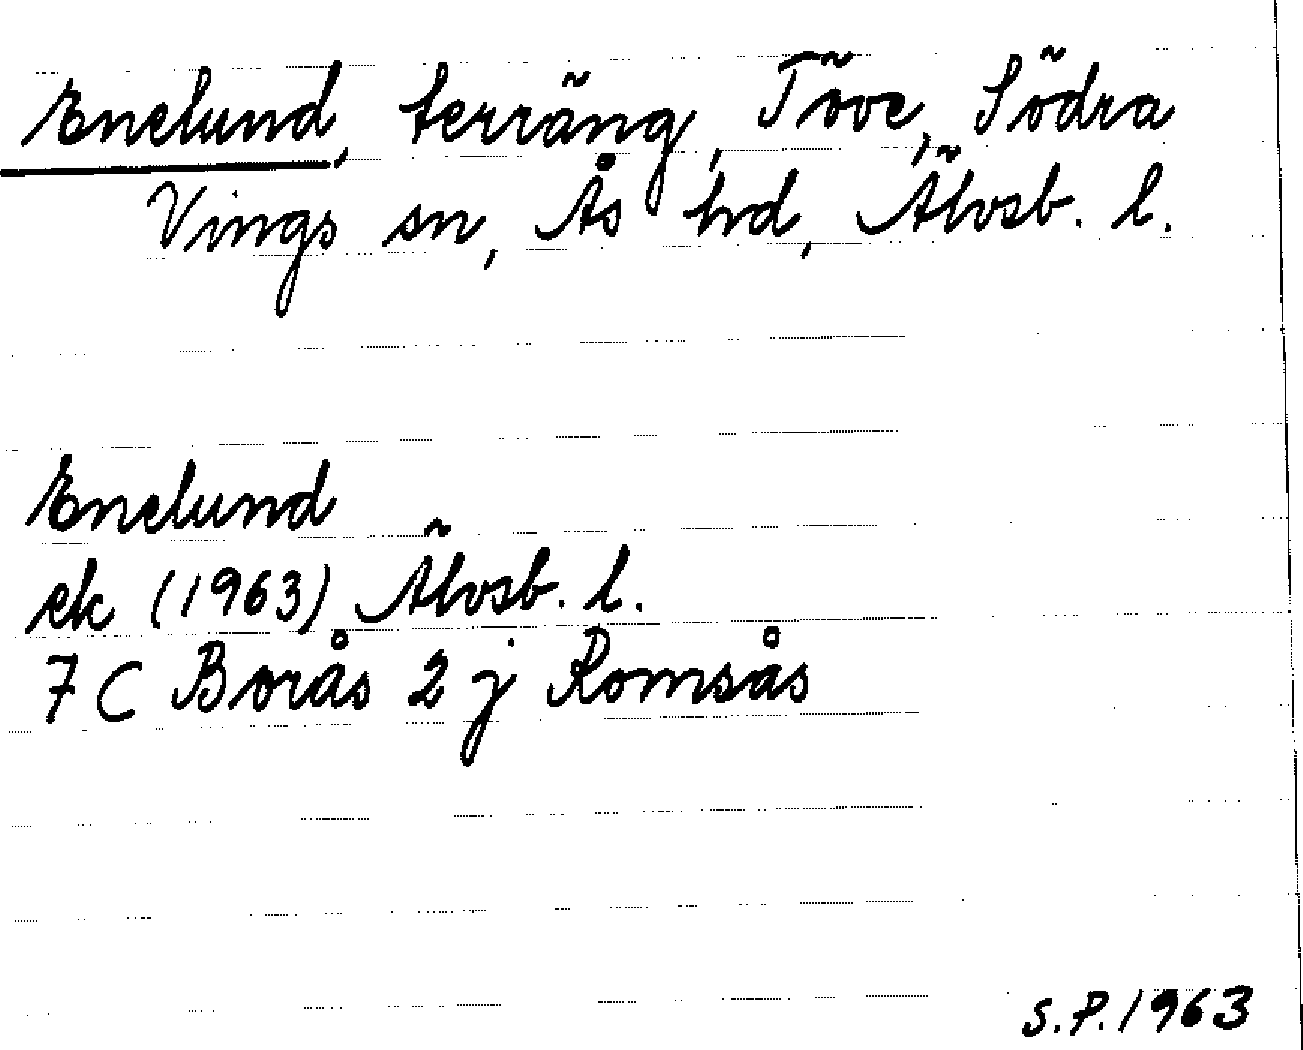 Enelund, terräng, Töve, Södra
Vings sn, Ås hrd, Älvsb. l.
Enelund
ek (1963) Älvsb. l.
7 C Borås 2 j Romsås
S.P. 1963